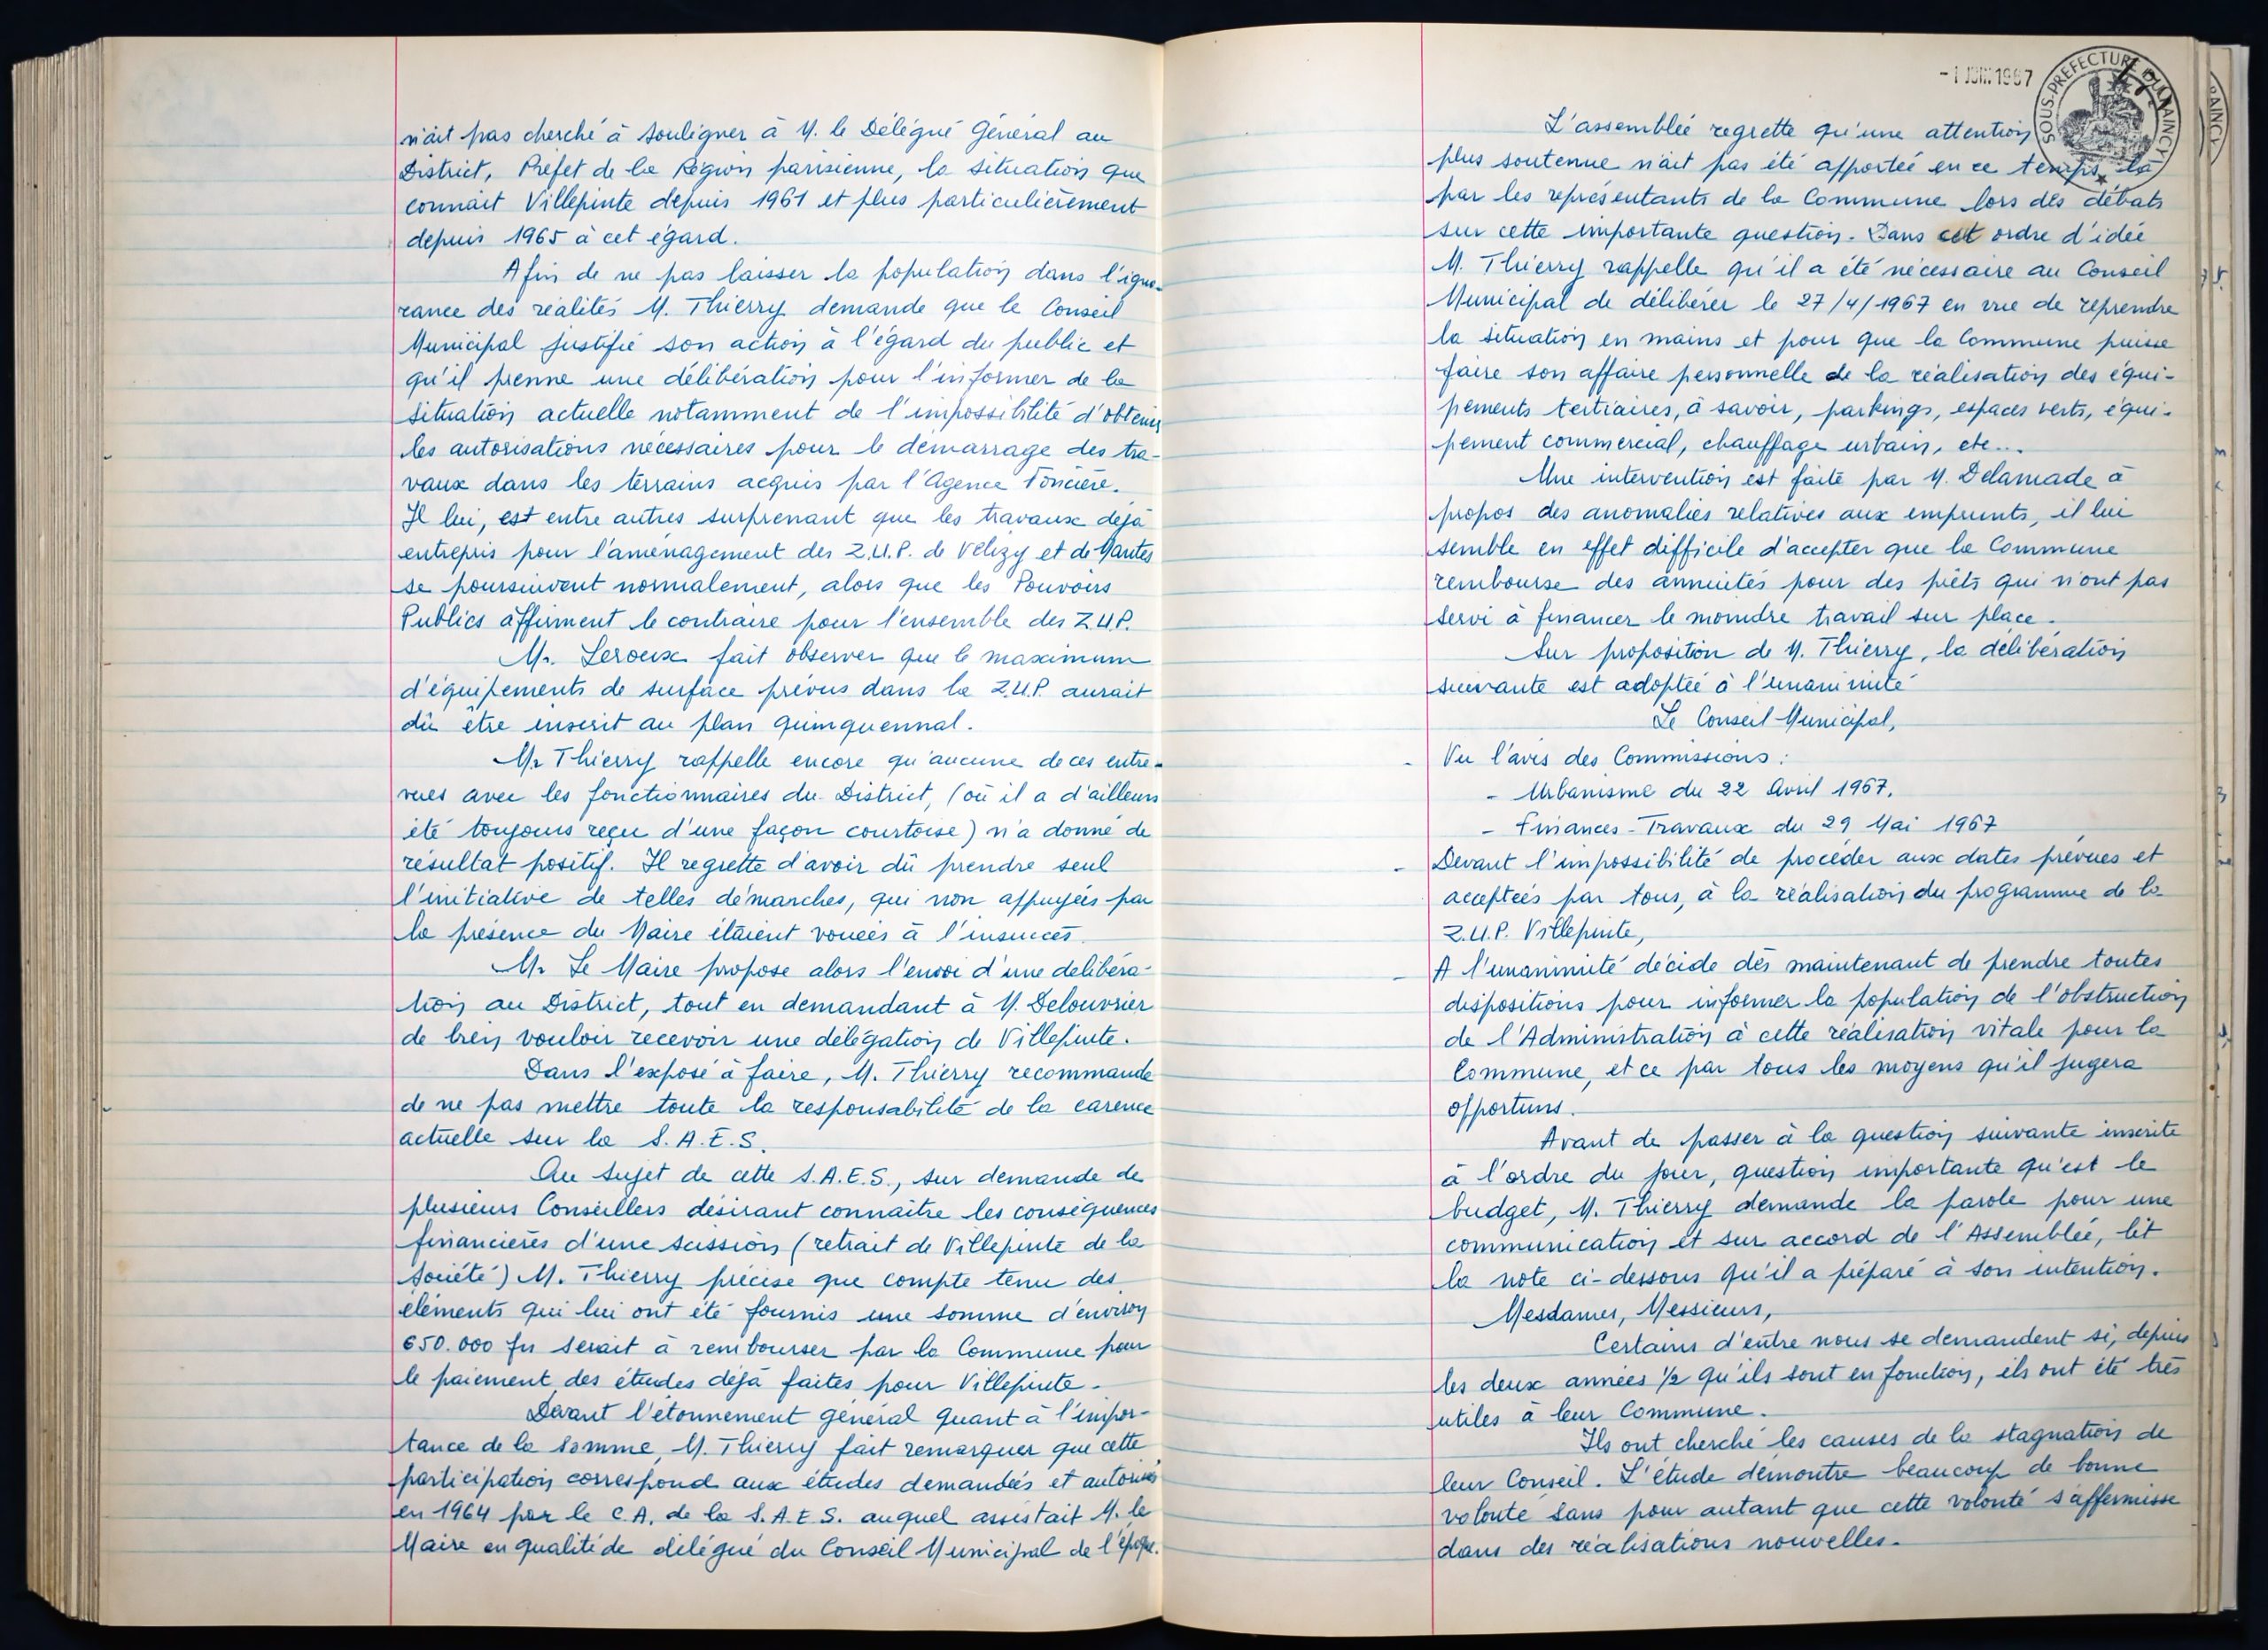 n'ait pas cherché à souligner à M. le Délégué Général au
District, Préfet de la Région parisienne, la situation que
connait Villepinte depuis 1961 et plus particulièrement
depuis 1965 à cet égard.
Afin de ne pas laisser la population dans l'igno-
rance des réalités M. Thierry demande que le Conseil
Municipal justifie son action à l'égard du public et
qu'il prenne une délibération pour l'informer de la
situation actuelle notamment de l'impossibilité d'obtenir
les autorisations nécessaires pour le démarrage des tra-
vaux dans les terrains acquis par l'Agence Foncière.
Il lui, est entre autres surprenant que les travaux déjà
entrepris pour l'aménagement des Z.U.P. de Vélizy et de Mantes
se poursuivent normalement, alors que les Pouvoirs
Publics affirment le contraire pour l'ensemble des Z.U.P.
Mr. Leroux fait observer que le maximum
d'équipements de surface prévus dans la Z.U.P. aurait
dû être inscrit au plan quinquennal.
Mr Thierry rappelle encore qu'aucune de ces entre-
vues avec les fonctionnaires du District, (où il a d'ailleurs
été toujours reçu d'une façon courtoise) n'a donné de
résultat positif. Il regrette d'avoir dû prendre seul
l'initiative de telles démarches, qui non appuyées par
la présence du Maire étaient vouées à l'insuccès.
Mr Le Maire propose alors l'envoi d'une délibéra-
tion au District, tout en demandant à M. Delouvrier
de bien vouloir recevoir une délégation de Villepinte.
Dans l'exposé à faire, M. Thierry recommande
de ne pas mettre toute la responsabilité de la carence
actuelle sur la S.A.E.S.
Au sujet de cette S.A.E.S., sur demande de
plusieurs Conseillers désirant connaître les conséquences
financières d'une scission (retrait de Villepinte de la
Société) M. Thierry précise que compte tenu des
éléments qui lui ont été fournis une somme d'environ
650.000 frs serait à rembourser par la Commune pour
le paiement des études déjà faites pour Villepinte.
Devant l'étonnement général quant à l'impor-
tance de la somme, M. Thierry fait remarquer que cette
participation correspond aux études demandées et autorisées
en 1964 par le C.A. de la S.A.E.S. auquel assistait M. le
Maire en qualité de délégué du Conseil Municipal de l'époque.
-1 JUIN 1967
SOUS-PREFECTURE DU RAINCY
L'assemblée regrette qu'une attention
plus soutenue n'ait pas été apportée en ce temps là
par les représentants de la Commune lors des débats
sur cette importante question. Dans cet ordre d'idée
M. Thierry rappelle qu'il a été nécessaire au Conseil
Municipal de délibérer le 27/4/1967 en vue de reprendre
la situation en mains et pour que la Commune puisse
faire son affaire personnelle de la réalisation des équi-
pements tertiaires, à savoir, parkings, espaces verts, équi-
pement commercial, chauffage urbain, etc...
Une intervention est faite par M. Delamade à
propos des anomalies relatives aux emprunts, il lui
semble en effet difficile d'accepter que la Commune
rembourse des annuités pour des prêts qui n'ont pas
servi à financer le moindre travail sur place.
Sur proposition de M. Thierry, la délibération
suivante est adoptée à l'unanimité
Le Conseil Municipal,
- Vu l'avis des Commissions :
- Urbanisme du 22 Avril 1967.
- Finances-Travaux du 29 Mai 1967
- Devant l'impossibilité de procéder aux dates prévues et
acceptées par tous, à la réalisation du programme de la
Z.U.P. Villepinte,
- A l'unanimité décide dès maintenant de prendre toutes
dispositions pour informer la population de l'obstruction
de l'Administration à cette réalisation vitale pour la
Commune, et ce par tous les moyens qu'il jugera
opportuns.
Avant de passer à la question suivante inscrite
à l'ordre du jour, question importante qu'est le
budget, M. Thierry demande la parole pour une
communication et sur accord de l'Assemblée, lit
la note ci-dessous qu'il a préparé à son intention.
Mesdames, Messieurs,
Certains d'entre nous se demandent si, depuis
les deux années 1/2 qu'ils sont en fonction, ils ont été très
utiles à leur Commune.
Ils ont cherché les causes de la stagnation de
leur Conseil. L'étude démontre beaucoup de bonne
volonté sans pour autant que cette volonté s'affermisse
dans des réalisations nouvelles.